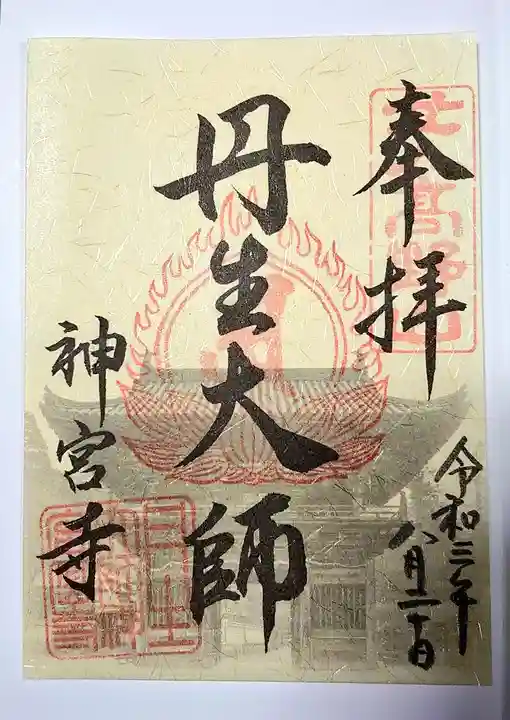 奉拝
令和三年
八月二十日
丹生大師
神宮寺